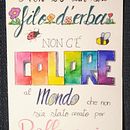 filo d'erba
NON C'È
COLORE
al Mondo che non
sia stato creato per